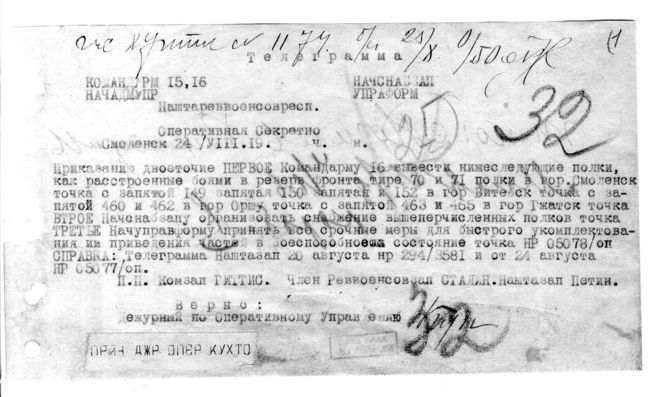 11 74
Телеграмма
КОМАНДУРМ 15,16 НАЧСНАБЗАП
НАЧАДМУПР УПРАФОРМ
Наштареввоенсовресп.
32
Оперативная Секретно
Смоленск 24 /УIII.19. ч. м.
Приказано двоеточие ПЕРВОЕ Командарму 16 вывести нижеследующие полки,
как расстроенные боями в резерв фронта тире 70 и 71 полки в гор.Смоленск
точка с запятой 149 запятая 150 запятая и 152 в гор Витебск точка с за-
пятой 460 и 462 в гор Оршу точка с запятой 463 и 465 в гор Гжатск точка
ВТРОЕ Начснабзапу организовать снабжение вышеперчисленных полков точка
ТРЕТЬЕ Начупраформу принять все срочные меры для быстрого укомплектова-
ния ии приведения частей в боеспособное состояние точка НР 05078/оп
СПРАВКА: Телеграмма Наштазап 20 августа нр 294/3581 и от 24 августа
НР 05077/оп.
П.П. Комзап ГИТТИС. Член Реввоенсовзап СТАЛИН. Наштазап Петин.
Верно:
Дежурный по Оперативному Управлению
32
ПРИН ДЖР ОПЕР КУХТО